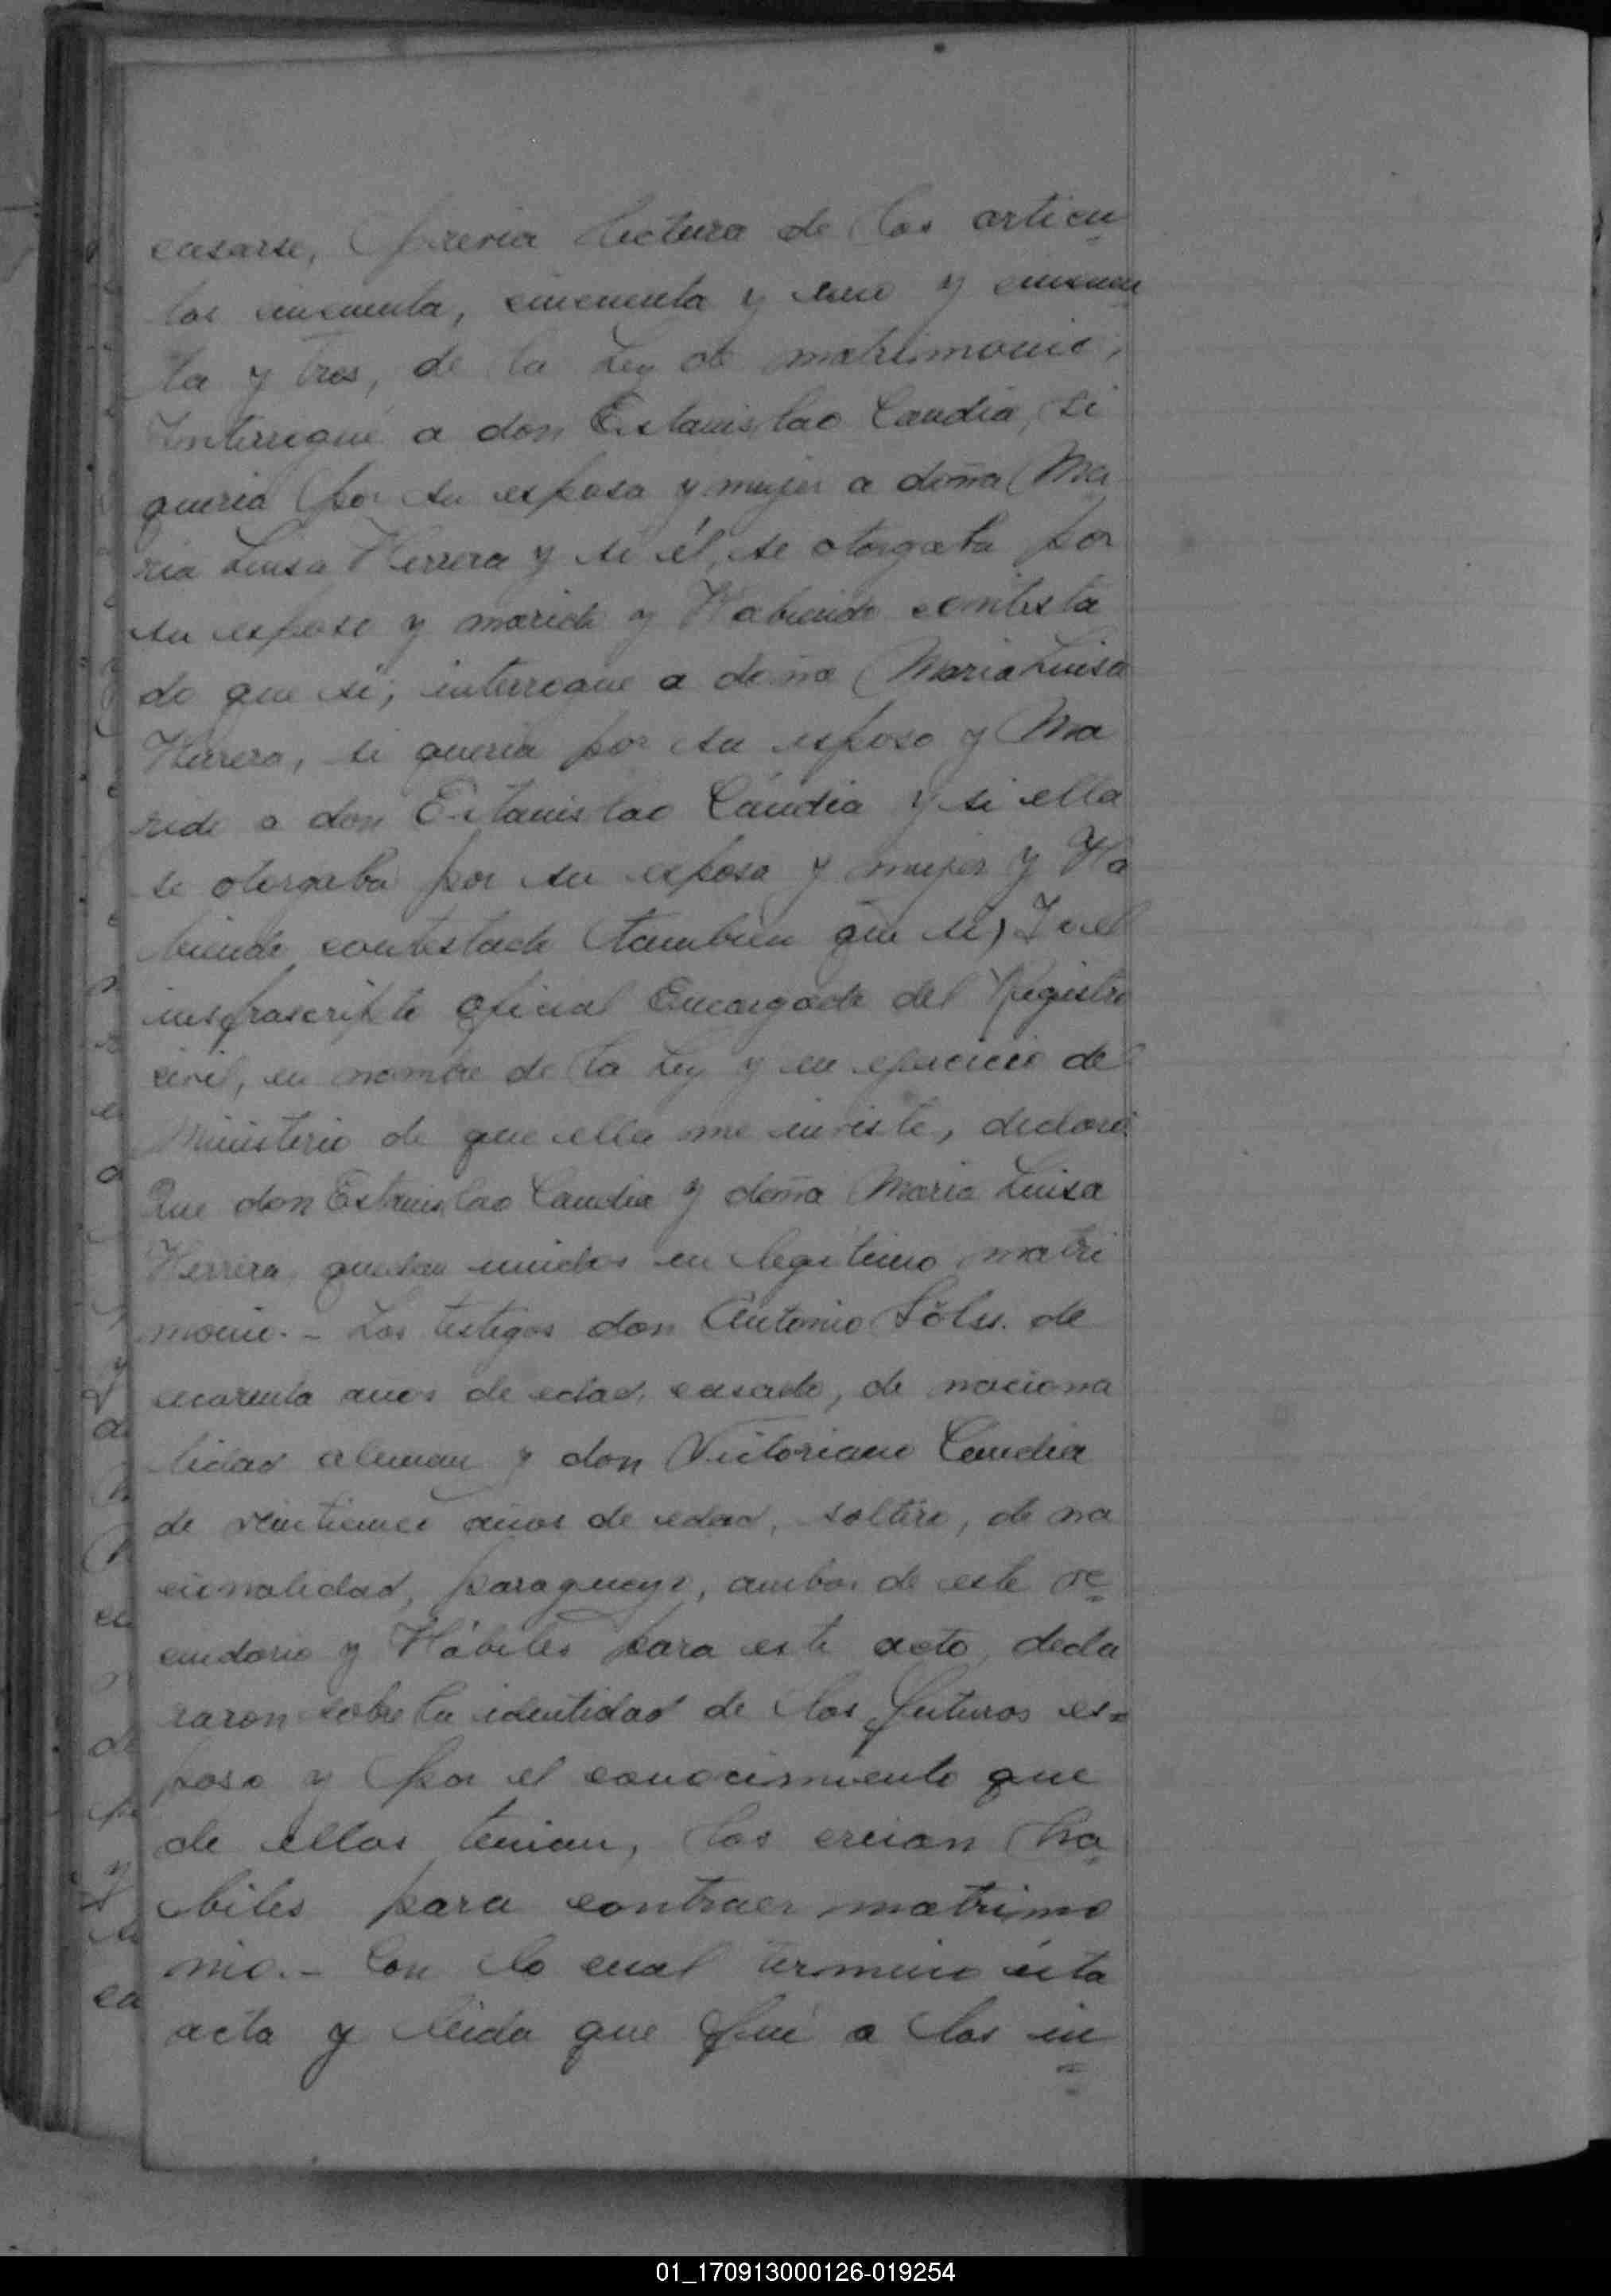 casarse, previa lectura de los articu
los cincuenta, cincuenta y uno y cincuen
ta y tres, de la Ley de matrimonio,
Interrogué a don Estanislao Candia, si
queria por su esposa y mujer a doña Ma
ria Luisa Herrera y si él, se otorgaba por
su esposo y marido y Habiendo contesta
do que si; interrogue a doña Maria Luisa
Herrera, si queria por su esposo y Ma
rido a don Estanislao Candia y si ella
se otorgaba por su esposa y mujer y Ha
biendo contestado tambien que si, Yo el
infrascripto oficial Encargado del Registro
civil, en nombre de la Ley y en ejercicio del
Ministerio de que ella me inviste, declaro:
Que don Estanislao Candia y doña Maria Luisa
Herrera, quedan unidos en legitimo matri
monio.- Los testigos don Antonio de
cuarenta anos de edad, casado, de naciona
lidad aleman y don Victoriano Candia
de años de edad, soltero, de na
cionalidad, paraguayo, ambos de este ve
cindario y Hábiles para este acto, decla
raron sobre la identidad de los futuros es=
poso y por el conocimiento que
de ellos tenian, los creian ha
biles para contraer matrimo
nio.- Con lo cual termino esta
acta y leida que fué a los in
01_170913000126-019254